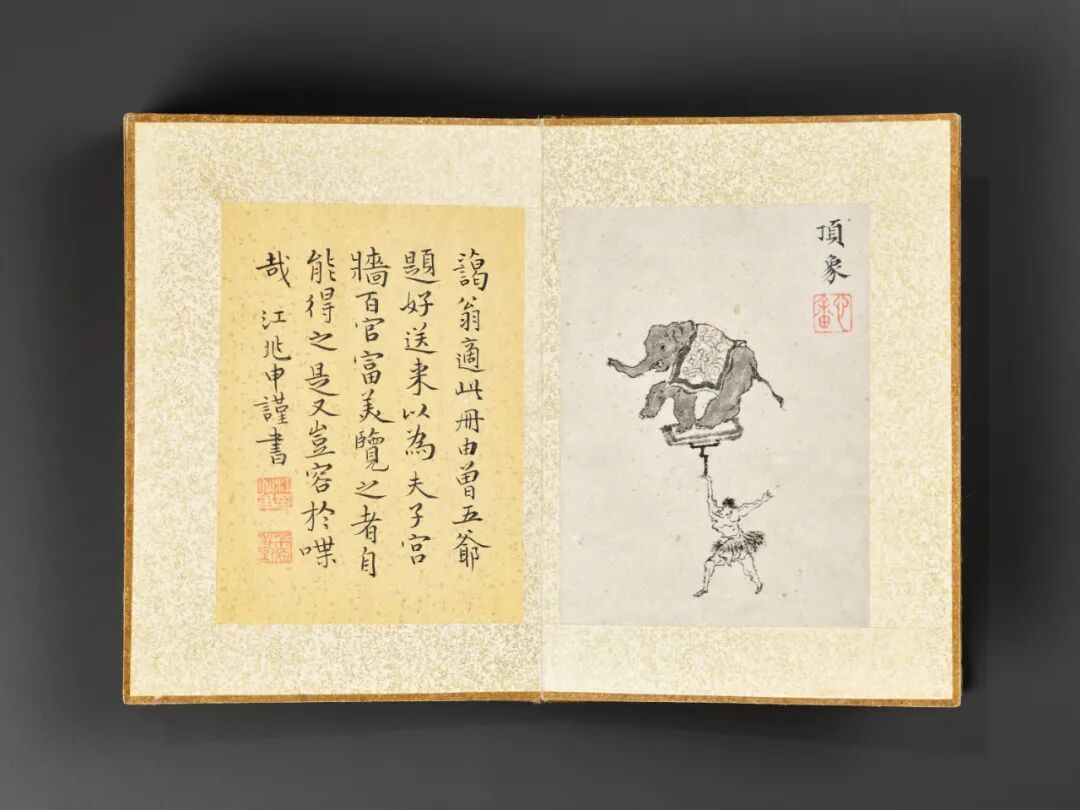 頂象
心畬
謁翁適此冊由曾五爺
題好送来以為夫子宮
牆百官富美覽之者自
能得之是又豈容於喋
哉 江兆申謹書